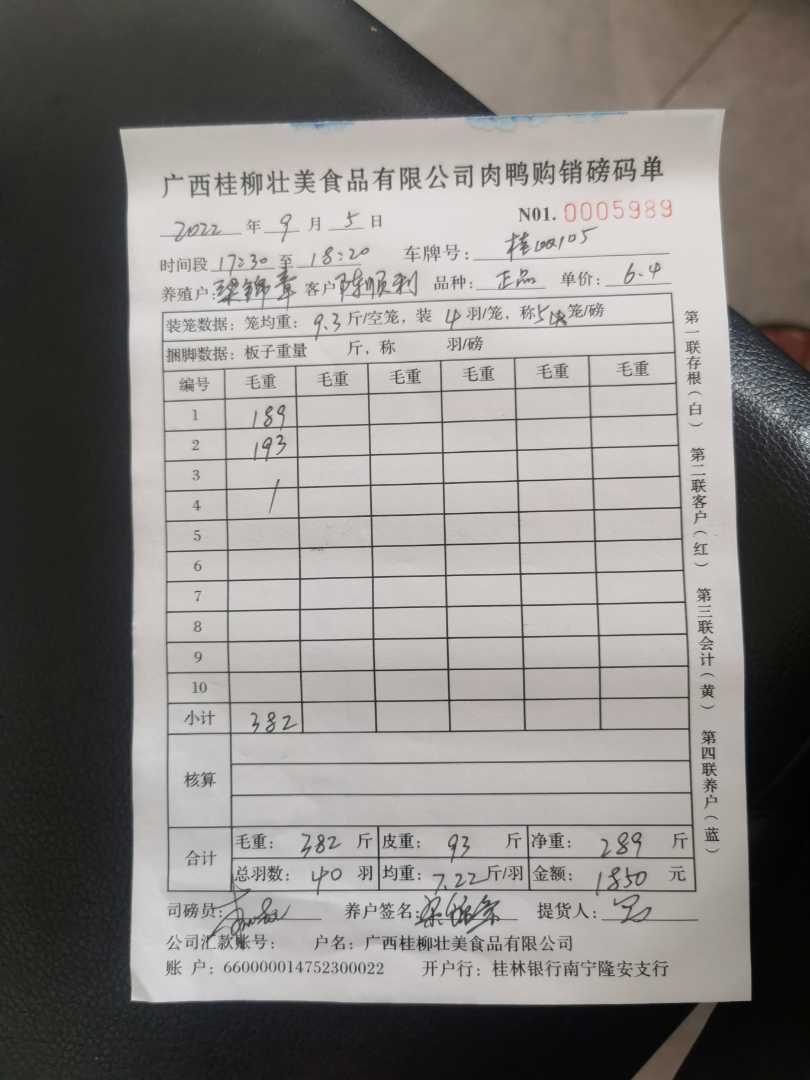 广西桂柳壮美食品有限公司肉鸭购销磅码单
2022 年 9 月 5 日 N01. 0005989
时间段 17:30 至 18:20 车牌号:
养殖户: 梁锦章 客户 陈顺利 品种: 正品 单价: 6.4
装笼数据: 笼均重: 9.3 斤/空笼, 装 4 羽/笼, 称 5 笼/磅
捆脚数据: 板子重量 斤, 称 羽/磅
编号 毛重 毛重 毛重 毛重 毛重 毛重
1 189
2 193
3
4 /
5
6
7
8
9
10
小计 382
核算
合计 毛重: 382 斤 皮重: 93 斤 净重: 289 斤
总羽数: 40 羽 均重: 7.22 斤/羽 金额: 1850 元
司磅员: 养户签名: 梁锦章 提货人:
公司汇款账号: 户名: 广西桂柳壮美食品有限公司
账 户: 660000014752300022 开户行: 桂林银行南宁隆安支行
第一联存根(白) 第二联客户(红) 第三联会计(黄) 第四联养户(蓝)